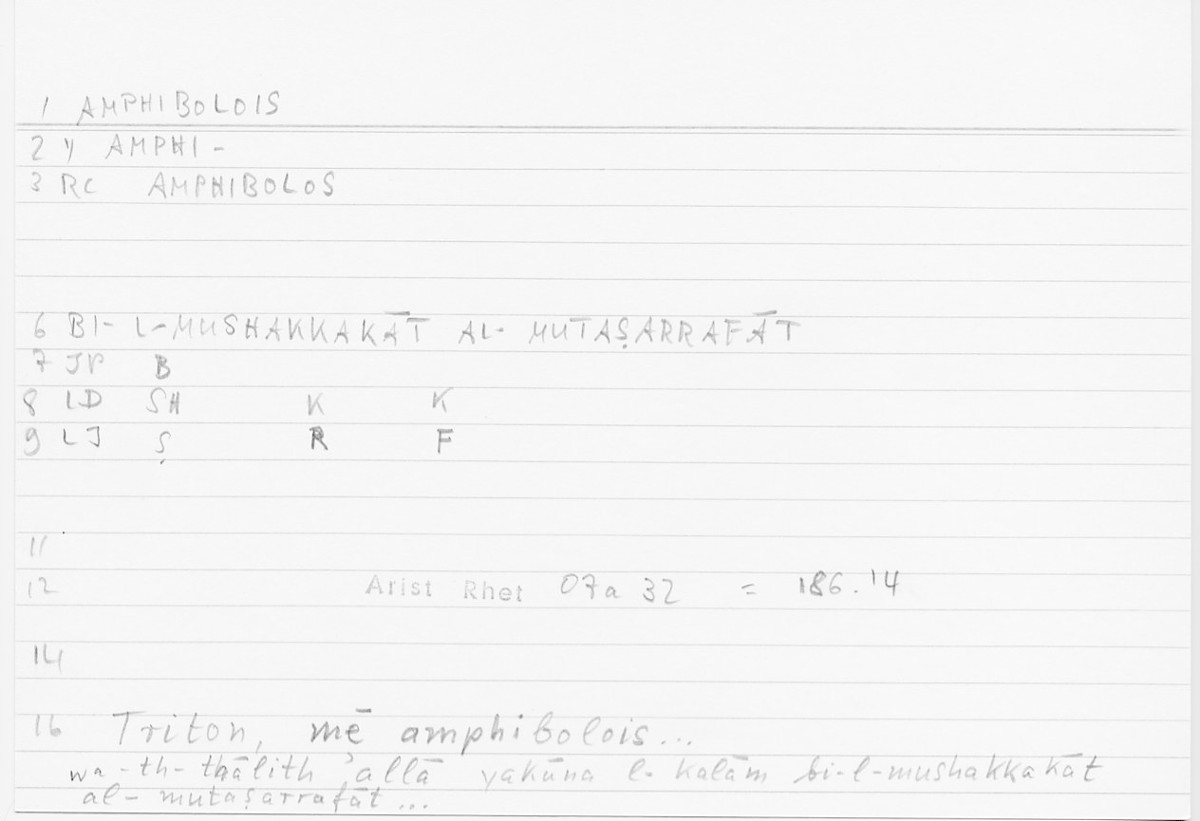 1 AMPHIBOLOIS
2 y AMPHI-
3 RC AMPHIBOLOS
6 BI-L-MUSHAKKAKĀT AL-MUTAṢARRAFĀT
7 JP B
8 LD SH K K
9 LJ Ṣ R F
11
12 Arist Rhet 07a 32 = 186.14
14
16 Triton, mē amphibolois...
wa-th-thālith ʾallā yakūna l-kalām bi-l-mushakkakāt
al-mutaṣarrafāt...